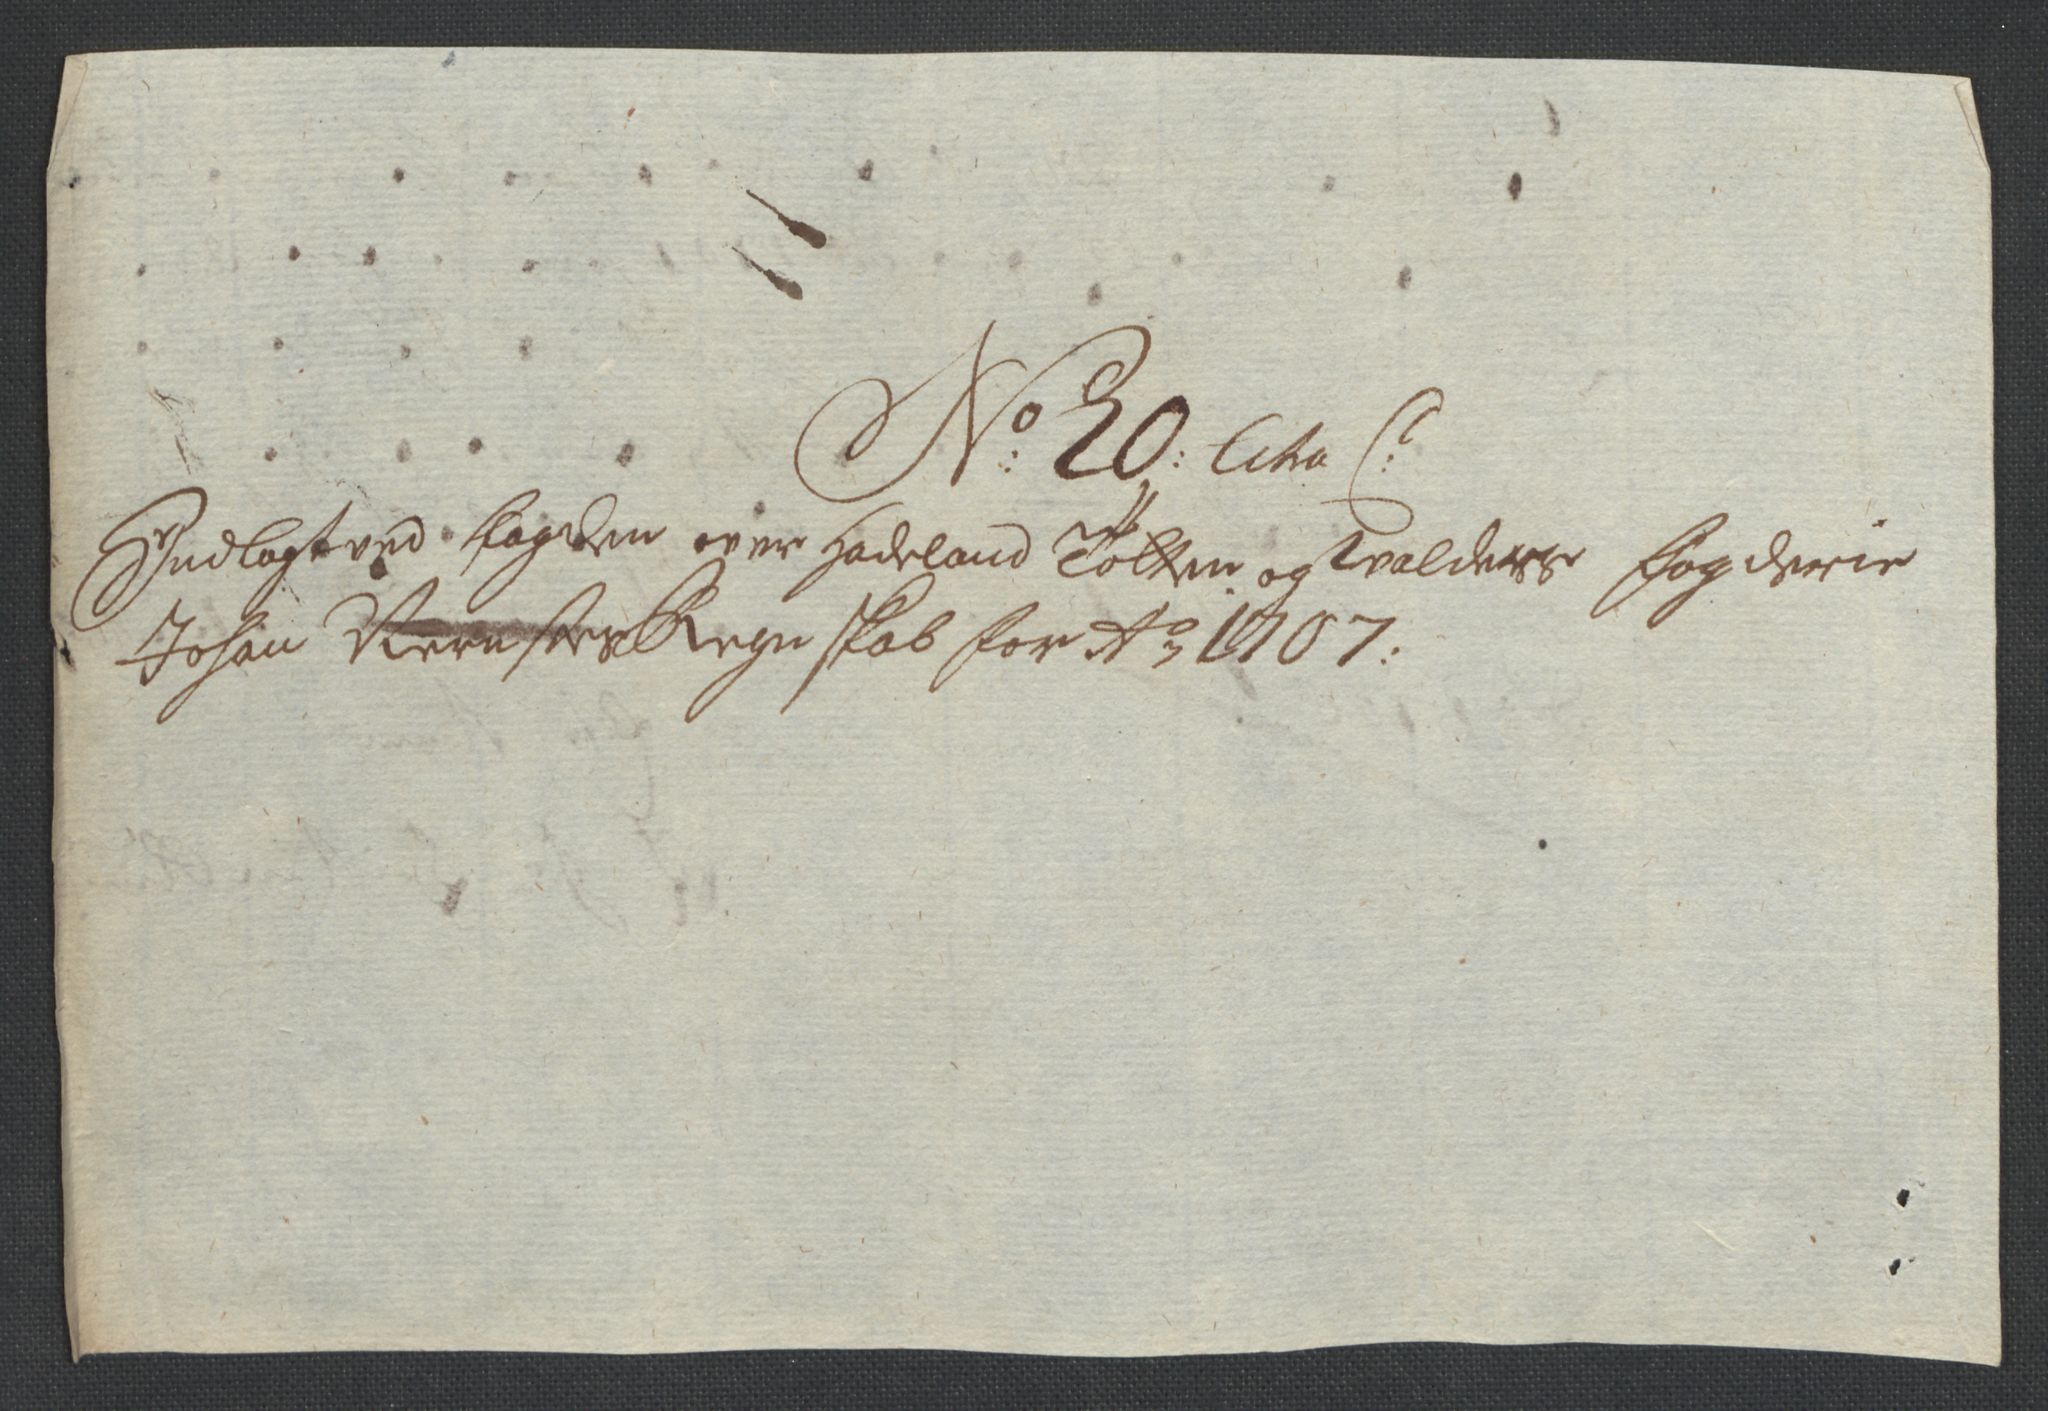 No: 20: Litra C:
Indlagt ved fogden over Hadeland Totten og Valders fogderie
Johan Regnskab for Ao 1707: